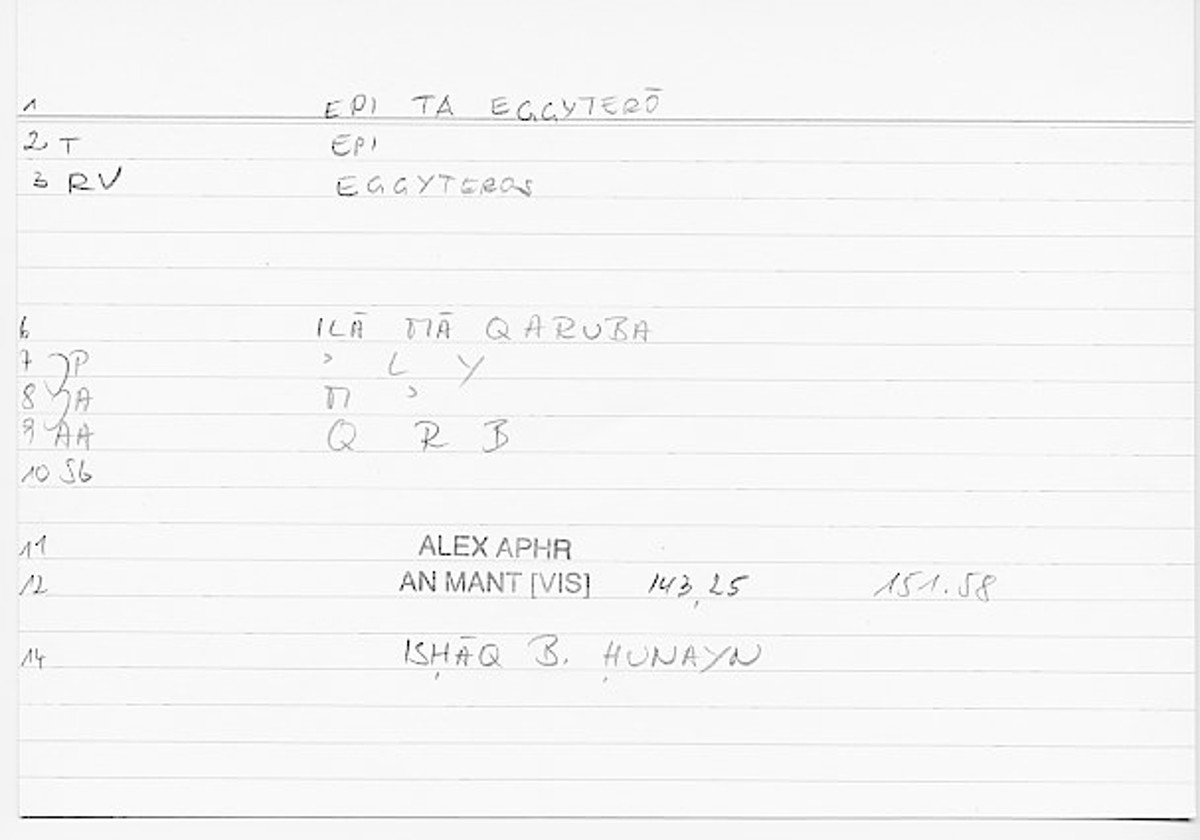 1 EPI TA EGGYTERŌ
2 T EPI
3 RV EGGYTEROS
6 ILĀ MĀ QARUBA
7 P ʾ L Y
8 A M ʾ
9 AA Q R B
10 Sb
11 ALEX APHR
12 AN MANT [VIS] 143,25 151.58
14 ISḤĀQ B. ḤUNAYN